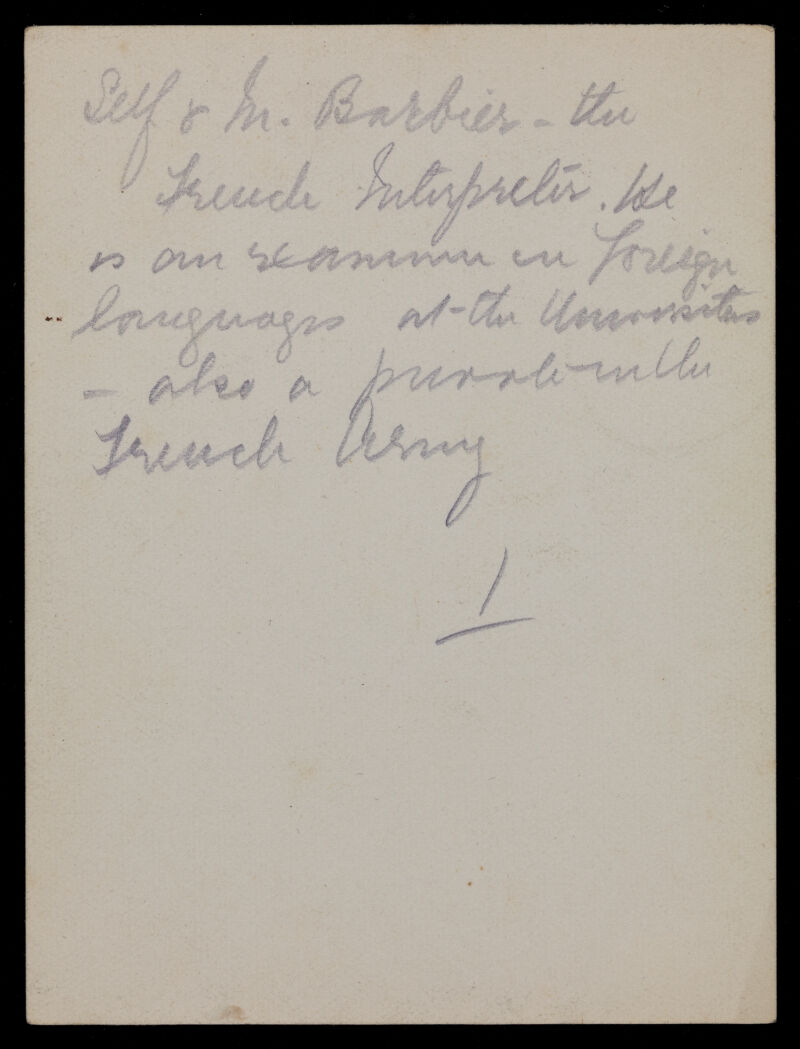 Self & M. Barbier - the
French Interpreter. He
is an examiner in foreign
languages at the Universities
- also a private in the
French Army
1